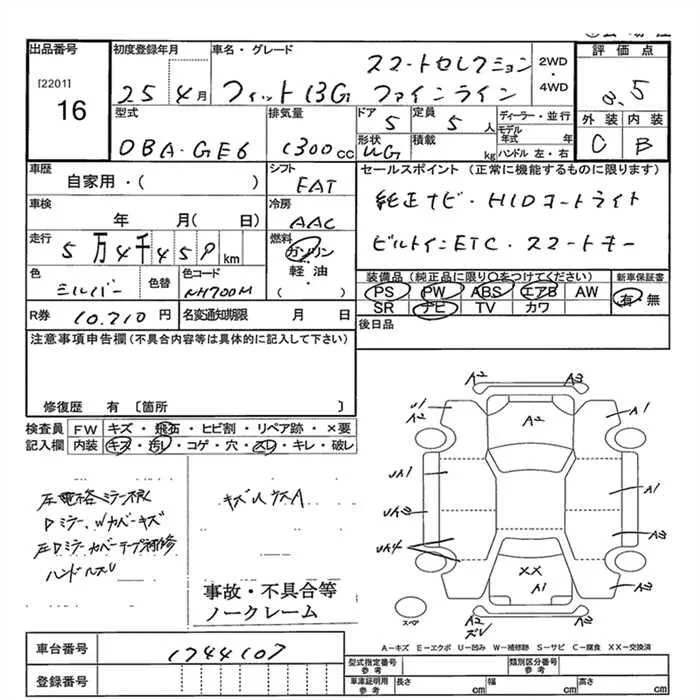 出品番号 初度登録年月 車名・グレード 評価点
[2201] 16
25 4月 フィット 13G スマートセレクション ファインライン
2WD・4WD
3.5
型式 排気量 ドア 定員 ディーラー・並行 外装 内装
DBA-GE6 1300cc 5 5人 モデル年式 年 C B
形状 積載
WG kg ハンドル 左・右
車歴 シフト セールスポイント(正常に機能するものに限ります)
自家用・( ) FAT
純正ナビ・HIDオートライト
車検 冷房
年 月( 日) AAC
ビルトインETC・スマートキー
走行 燃料
5万4千459km ガソリン・軽油・( )
色 色替 色コード 装備品(純正品に限り○をつけてください) 新車保証書
シルバー NH700M PS PW ABS エアB AW 有・無
SR ナビ TV カワ
R券 10,210円 名変通知期限 月 日 後日品
注意事項申告欄(不具合内容等は具体的に記入して下さい)
修復歴 有〔箇所 〕
検査員記入欄 FW キズ・飛石・ヒビ割・リペア跡・×要
内装 キズ・汚レ・コゲ・穴・スレ・キレ・破レ
キズUウスA
Dミラー、Wカバーキズ
左Dミラーカバーテープ補修
ハンドルスレ
事故・不具合等
ノークレーム
A2 A3
U1 A2 A1
UA1 A1
UA3 A2
UA4
XX A1 A3
A2
スレ
スペア
A−キズ E−エクボ U−凹み W−補修跡 S−サビ C−腐食 XX−交換済
車台番号 1744107
登録番号
型式指定番号 参考 類別区分番号 参考
車庫証明用 参考 長さ cm 幅 cm 高さ cm